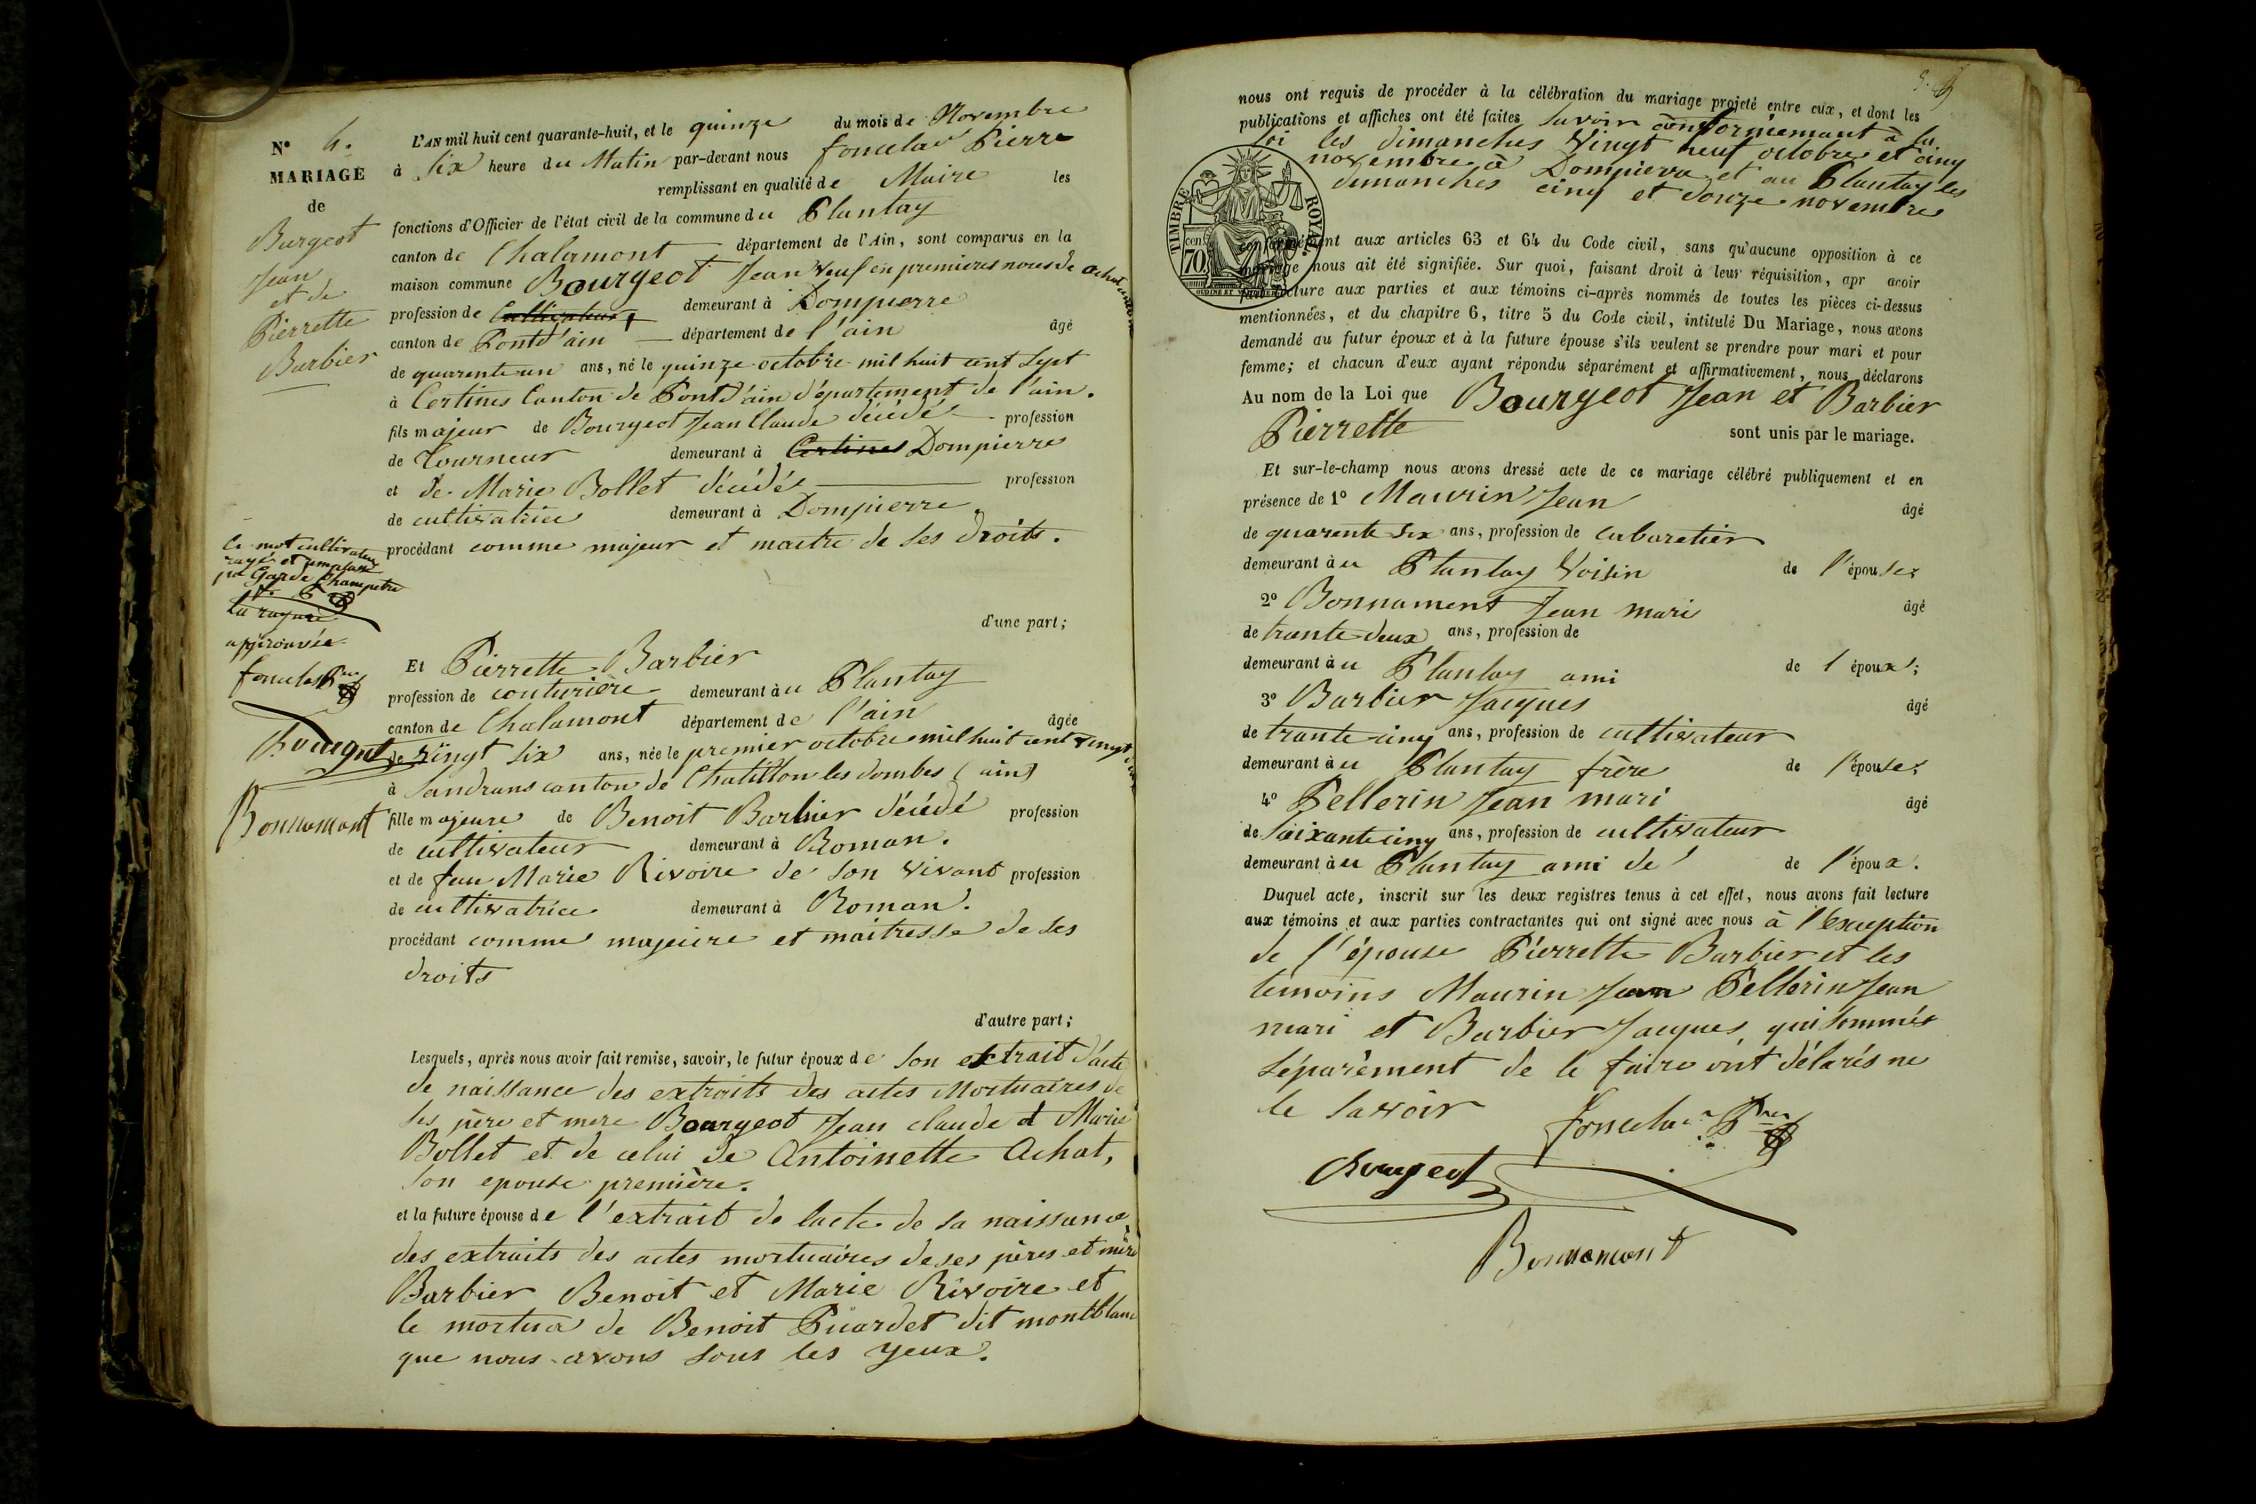 N° 4.
MARIAGE
de
Burgeot
Jean
et de
Pierrette
Barbier
L'AN mil huit cent quarante-huit, et le quinze du mois de Novembre
à dix heure du Matin par-devant nous Pierre
remplissant en qualité de Maire les
fonctions d'Officier de l'état civil de la commune du Plantay
canton de Chalamont département de l'Ain, sont comparus en la
maison commune Bourgeot Jean Veuf en premieres noces de
profession de Cultivateur demeurant à Dompierre
canton de Pontd'ain département de l'ain âgé
de quarente un ans, né le quinze octobre mil huit cent sept
à Certines Canton de Pontd'ain département de l'ain.
fils majeur de Bourgeot Jean Claude décédé profession
de Tourneur demeurant à Certines Dompierre
et de Marie Bollet décédée profession
de cultivatrice demeurant à Dompierre.
procédant comme majeur et maitre de ses droits.
d'une part;
Le mot cultivateur
rayé et remplassé
par Garde Champetre
la rayure
approuvée
Bourgeot
Bonnamont
Et Pierrette Barbier
profession de couturière demeurant au Plantay
canton de Chalamont département de l'ain âgée
de vingt six ans, née le premier octobre mil huit cent vingt
à Sandrans canton de Chatillon les dombes (ain)
fille majeure de Benoit Barbier décédé profession
de cultivateur demeurant à Roman.
et de feu Marie Rivoire de son vivant profession
de cultivatrice demeurant à Roman.
procédant comme majeure et maitresse de ses
droits
d'autre part;
Lesquels, après nous avoir fait remise, savoir, le futur époux de son extrait d'acte
de naissance des extraits des actes Mortuaires de
ses père et mere Bourgeot Jean claude et Marie
Bollet et de celui de Antoinette Achat,
son epouse première.
et la future épouse de l'extrait de lacte de sa naissance,
des extraits des actes mortuaires de ses pères et mère
Barbier Benoit et Marie Rivoire et
le de Benoit dit montblanc
que nous avons sous les yeux.
nous ont requis de procéder à la célébration du mariage projeté entre eux, et dont les
publications et affiches ont été faites savoir conformémant à la
loi les dimanches Vingt neuf octobre et cinq
novembre à Dompierre et au Plantay les
dimanches cinq et douze novembre
TIMBRE ROYAL
70 cen.
conformément aux articles 63 et 64 du Code civil, sans qu'aucune opposition à ce
mariage nous ait été signifiée. Sur quoi, faisant droit à leur réquisition, apr avoir
fait lecture aux parties et aux témoins ci-après nommés de toutes les pièces ci-dessus
mentionnées, et du chapitre 6, titre 5 du Code civil, intitulé Du Mariage, nous avons
demandé au futur époux et à la future épouse s'ils veulent se prendre pour mari et pour
femme; et chacun d'eux ayant répondu séparément et affirmativement, nous déclarons
Au nom de la Loi que Bourgeot Jean et Barbier
Pierrette sont unis par le mariage.
Et sur-le-champ nous avons dressé acte de ce mariage célébré publiquement et en
présence de 1° Maurin Jean âgé
de quarente six ans, profession de cabaretier
demeurant au Plantay Voisin de l'épouse;
2° Bonnament Jean mari âgé
de trante deux ans, profession de
demeurant au Plantay ami de l époux;
3° Barbier Jacques âgé
de trante cinq ans, profession de cultivateur
demeurant au Plantay frère de l'épouse;
4° Pellerin Jean mari âgé
de soixante cinq ans, profession de cultivateur
demeurant au Plantay ami de de l'époux.
Duquel acte, inscrit sur les deux registres tenus à cet effet, nous avons fait lecture
aux témoins et aux parties contractantes qui ont signé avec nous à l'Exception
de l'épouse Pierrette Barbier et les
temoins Maurin Jean Pellerin Jean
mari et Barbier Jacques, qui sommés
séparèment de le faire ont déclarés ne
le savoir
Bourgeot
Bonnamont